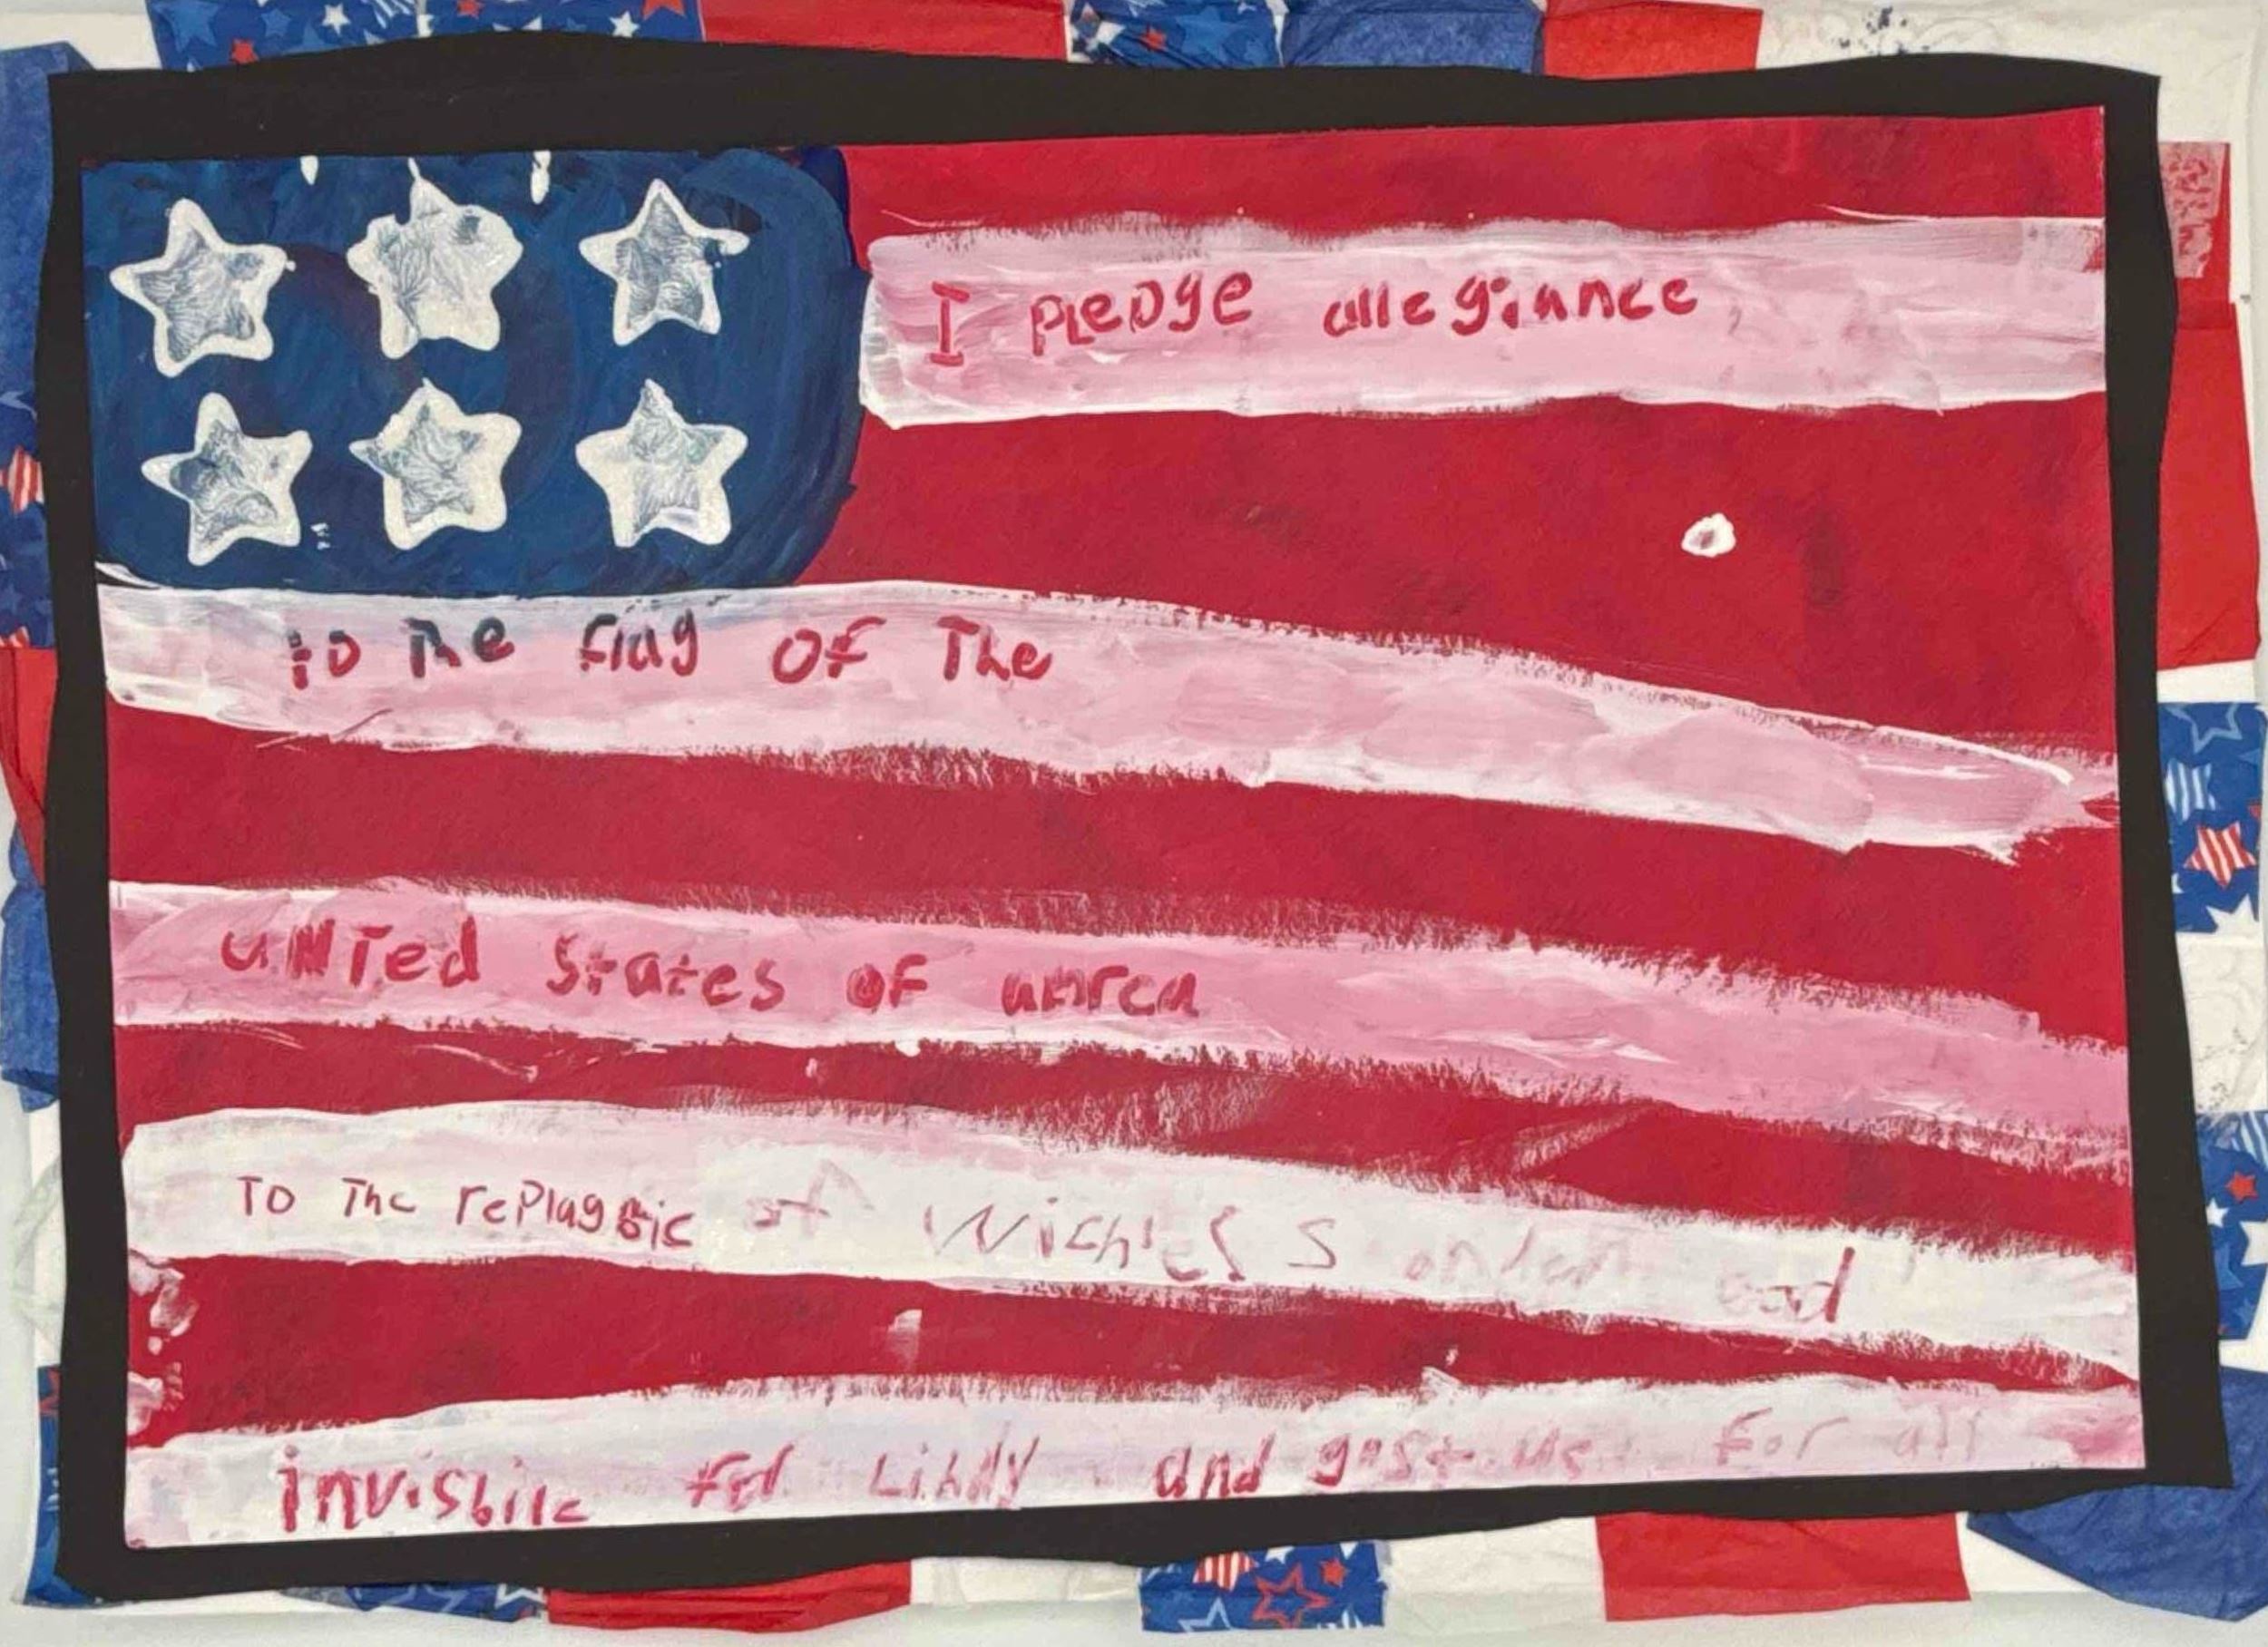 I PLeDge allegiance
to The flag OF The
uNiTed States OF amrca
TO The rePlag bic of Wiches S under
invisbile Fd Libdy and gostus For all